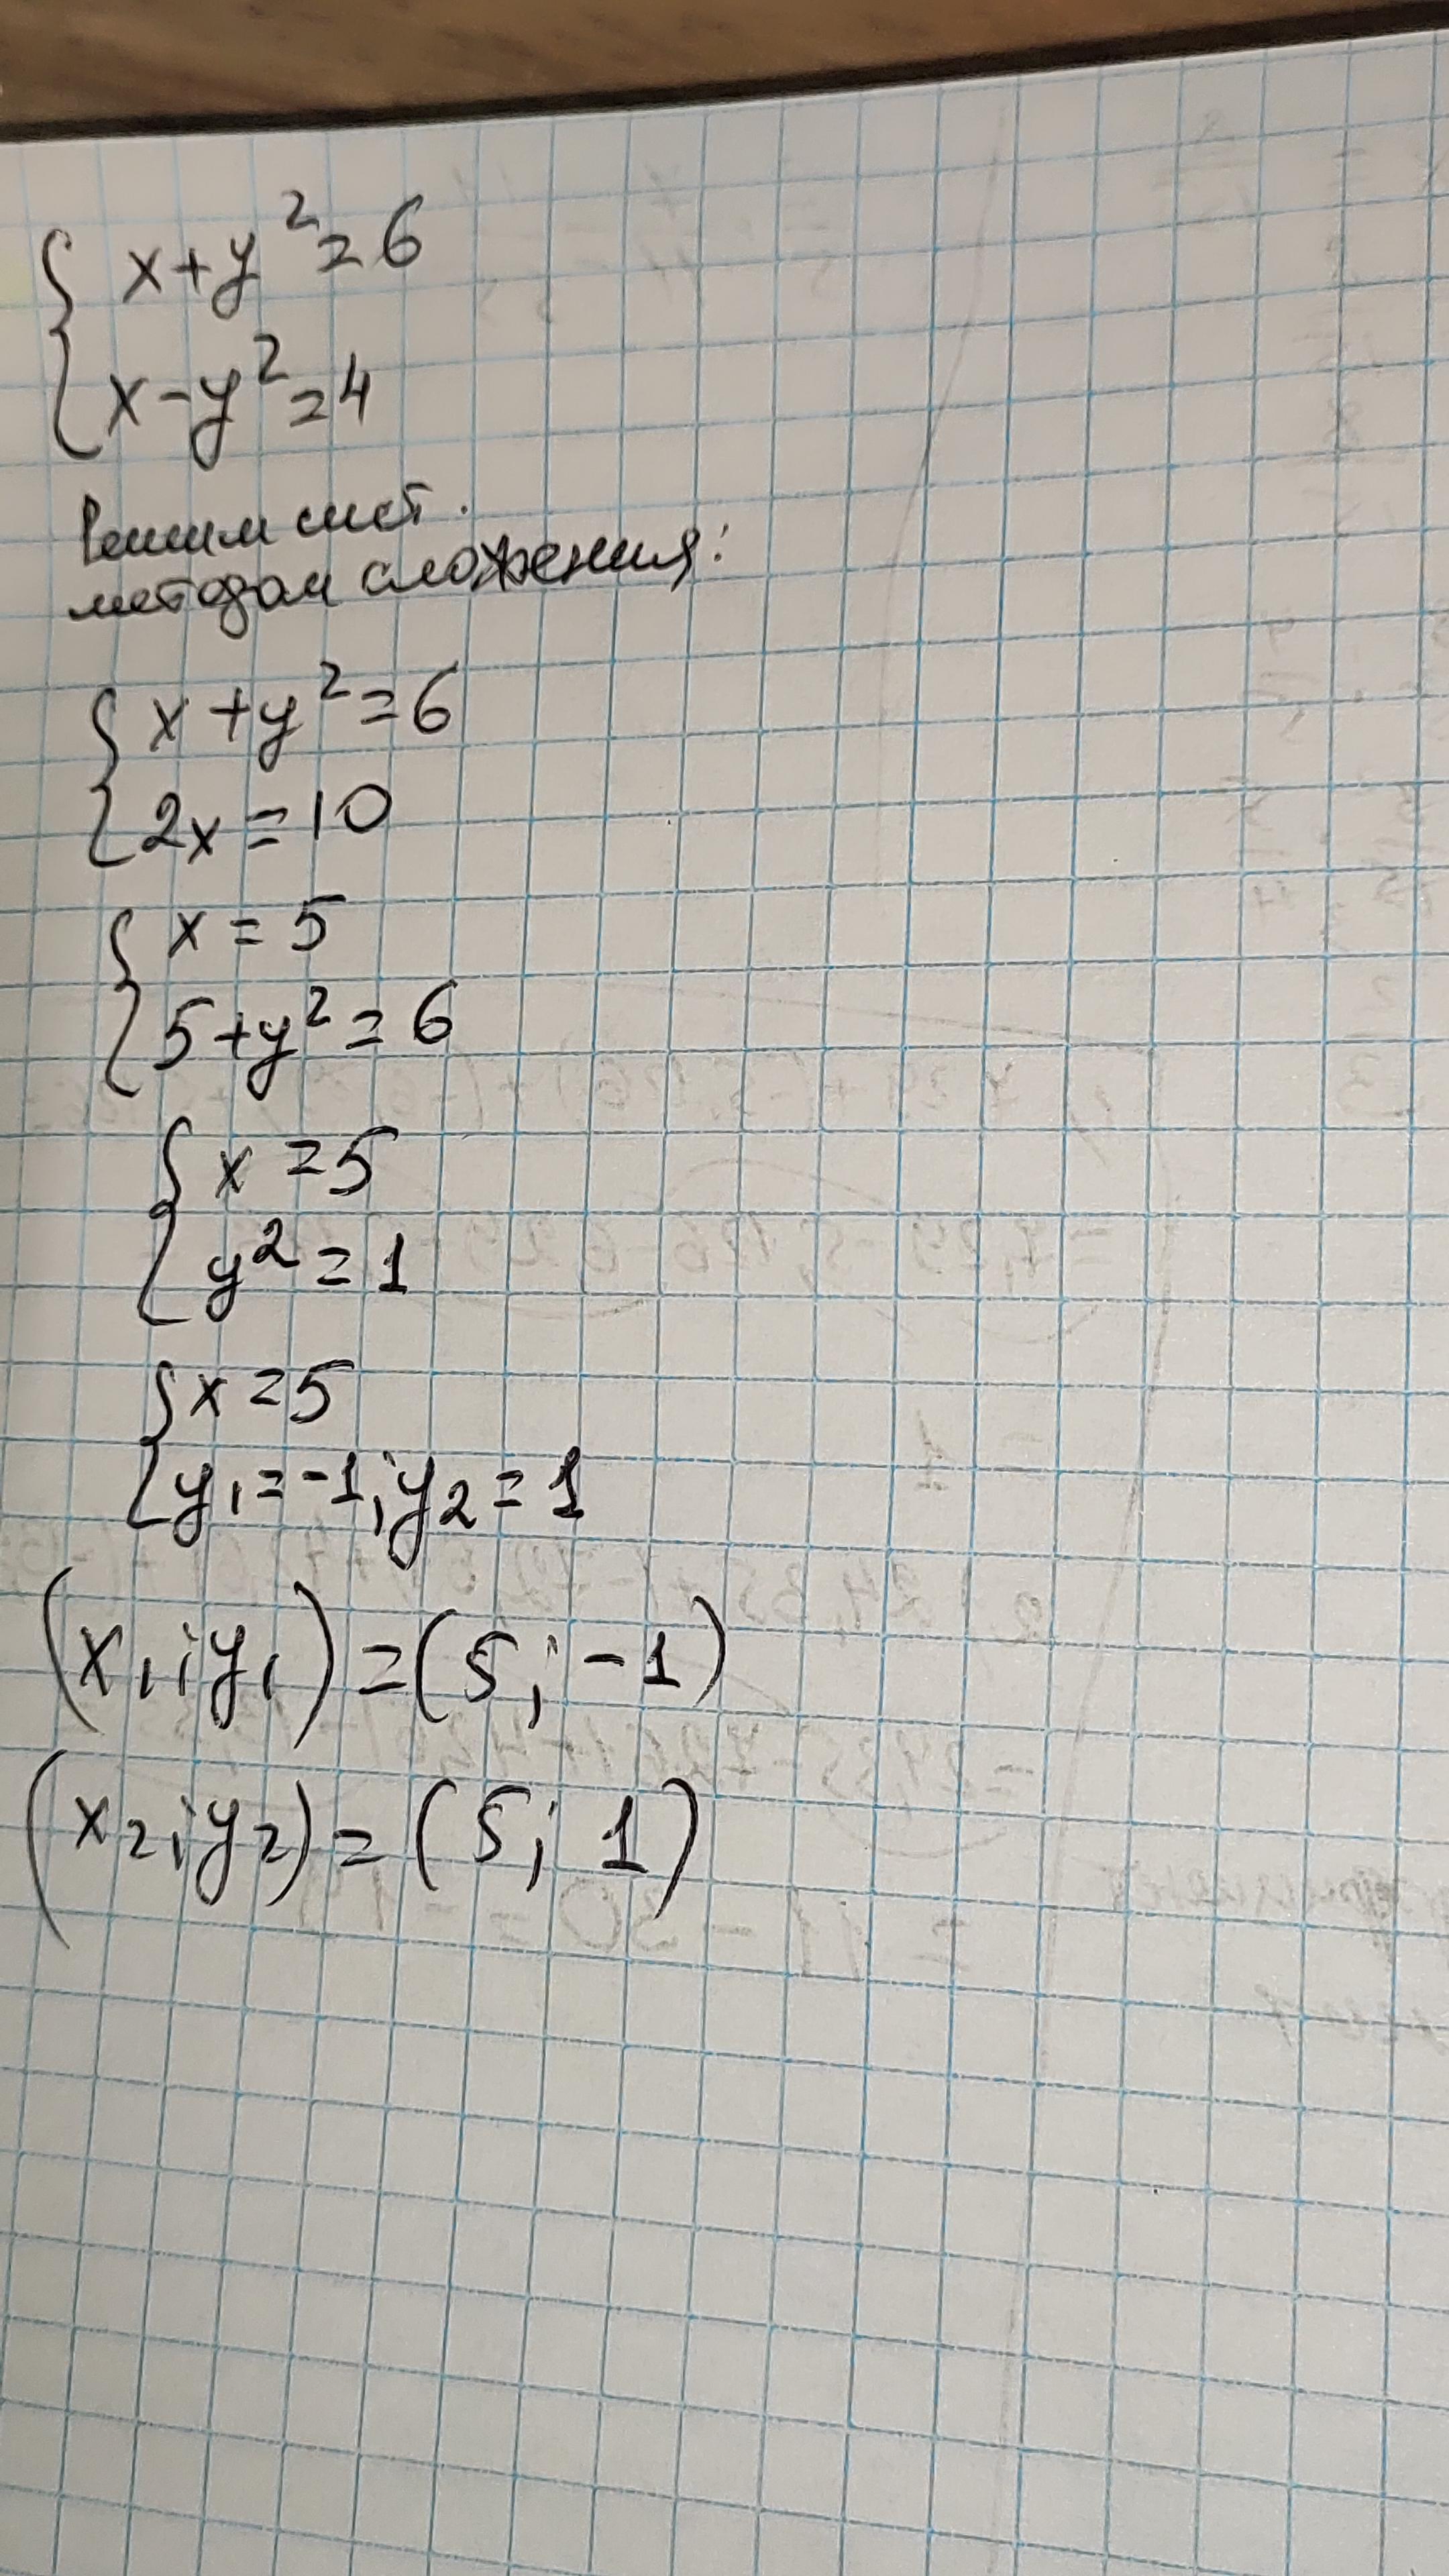 x+y²=6
x-y²=4
Решим сист.
методом сложения:
x+y²=6
2x=10
x=5
5+y²=6
x=5
y²=1
x=5
y₁=-1; y₂=1
(x₁; y₁)=(5; -1)
(x₂; y₂)=(5; 1)